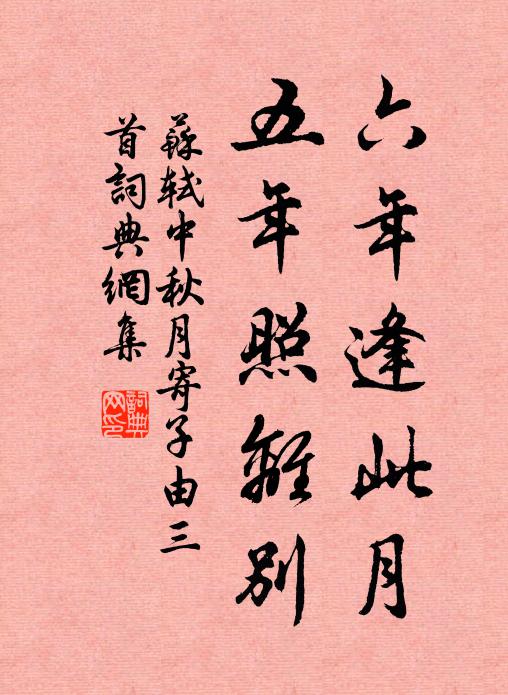 六年逢此月
五年照離別
蘇軾中秋月寄子由三
首詞典網集
詞典
网印